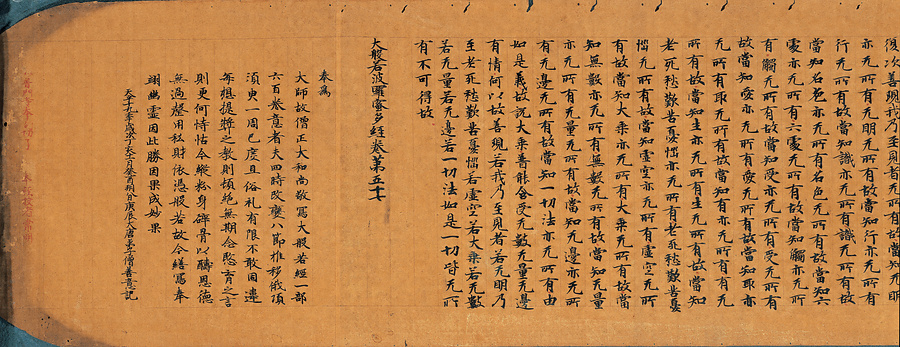 復次善現我乃至見者无所有故當知无明
亦无所有无明无所有故當知行亦无所有
行无所有故當知識亦无所有識无所有故
當知名色亦无所有名色无所有故當知六
處亦无所有六處无所有故當知觸亦无所
有觸无所有故當知受亦无所有受无所有
故當知愛亦无所有愛无所有故當知取亦
无所有取无所有故當知有亦无所有有无
所有故當知生亦无所有生无所有故當知
老死愁歎苦憂惱亦无所有老死愁歎苦憂
惱无所有故當知虛空亦无所有虛空无所
有故當知大乘亦无所有大乘无所有故當
知无數亦无所有无數无所有故當知无量
亦无所有无量无所有故當知无邊亦无所
有无邊无所有故當知一切法亦无所有由
如是義故說大乘普能含受无數无量无邊
有情何以故善現若我乃至見者若无明乃
至老死愁歎苦憂惱若虛空若大乘若无數
若无量若无邊若一切法如是一切皆无所
有不可得故
大般若波羅蜜多經卷第五十七
奉為
大師故僧正大和尚敬寫大般若經一部
六百卷意者夫四時改變八節推移俄頃
須臾一周已度且俗礼有限不敢因違
每想提撕之教則頓絕無期念慇育之言
則更何恃怙今縱粉身碎骨以酬恩德
無過整用私財依憑般若故今繕寫奉
翊幽靈因此勝因果成妙果
天平十九年歲次丁亥十一月癸酉朔八日庚辰入唐第二僧善意記